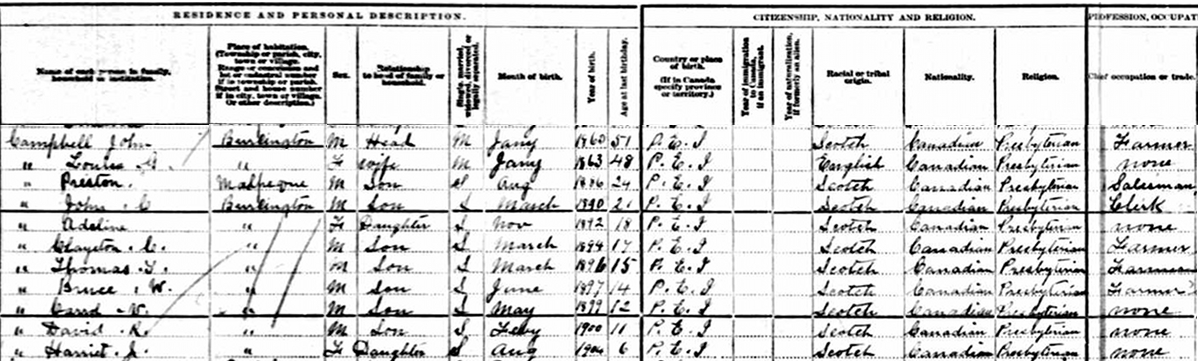 RESIDENCE AND PERSONAL DESCRIPTION. CITIZENSHIP, NATIONALITY AND RELIGION. PROFESSION, OCCUPAT
Name of each person in family, household or institution.
Place of habitation. (Township or parish, city, town or village. Range or concession and lot or cadastral number if in township or parish. Street and house number if in city, town or village. Or other description.)
Sex.
Relationship to head of family or household.
Single, married, widowed, divorced or legally separated.
Month of birth.
Year of birth.
Age at last birthday.
Country or place of birth. (If in Canada specify province or territory.)
Year of immigration to Canada, if an immigrant.
Year of naturalization, if formerly an alien.
Racial or tribal origin.
Nationality.
Religion.
Chief occupation or trade.
Campbell John Burlington M Head M Jany 1860 51 P. E. I Scotch Canadian Presbyterian Farmer
" Louisa " F wife M Jany 1863 48 P. E. I English Canadian Presbyterian none
" Preston. Malpeque M Son S Aug 1886 24 P. E. I Scotch Canadian Presbyterian Salesman
" John . C Burlington M Son S March 1890 21 P. E. I Scotch Canadian Presbyterian Clerk
" Adeline " F Daughter S Nov 1892 18 P. E. I Scotch Canadian Presbyterian none
" Clayton . C. " M Son S March 1894 17 P. E. I Scotch Canadian Presbyterian Farmer
" Thomas " M Son S March 1896 15 P. E. I Scotch Canadian Presbyterian
" Bruce . W. " M Son S June 1897 14 P. E. I Scotch Canadian Presbyterian Farmer
" W. " M Son S May 1899 12 P. E. I Scotch Canadian Presbyterian none
" David . R. " M Son S Feby 1900 11 P. E. I Scotch Canadian Presbyterian none
" Harriet . J. " F Daughter S Aug 1904 6 P. E. I Scotch Canadian Presbyterian none